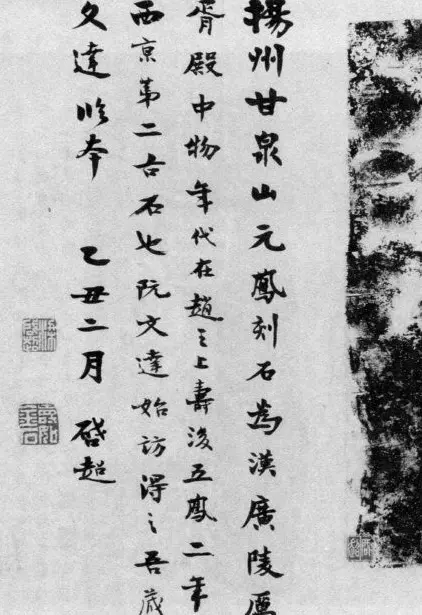 揚州甘泉山元鳳刻石為漢廣陵厲
胥殿中物年代在趙之上壽後五鳳二年
西京第二古石也阮文達始訪得之吾藏
文達脩本　乙丑二月　啓超